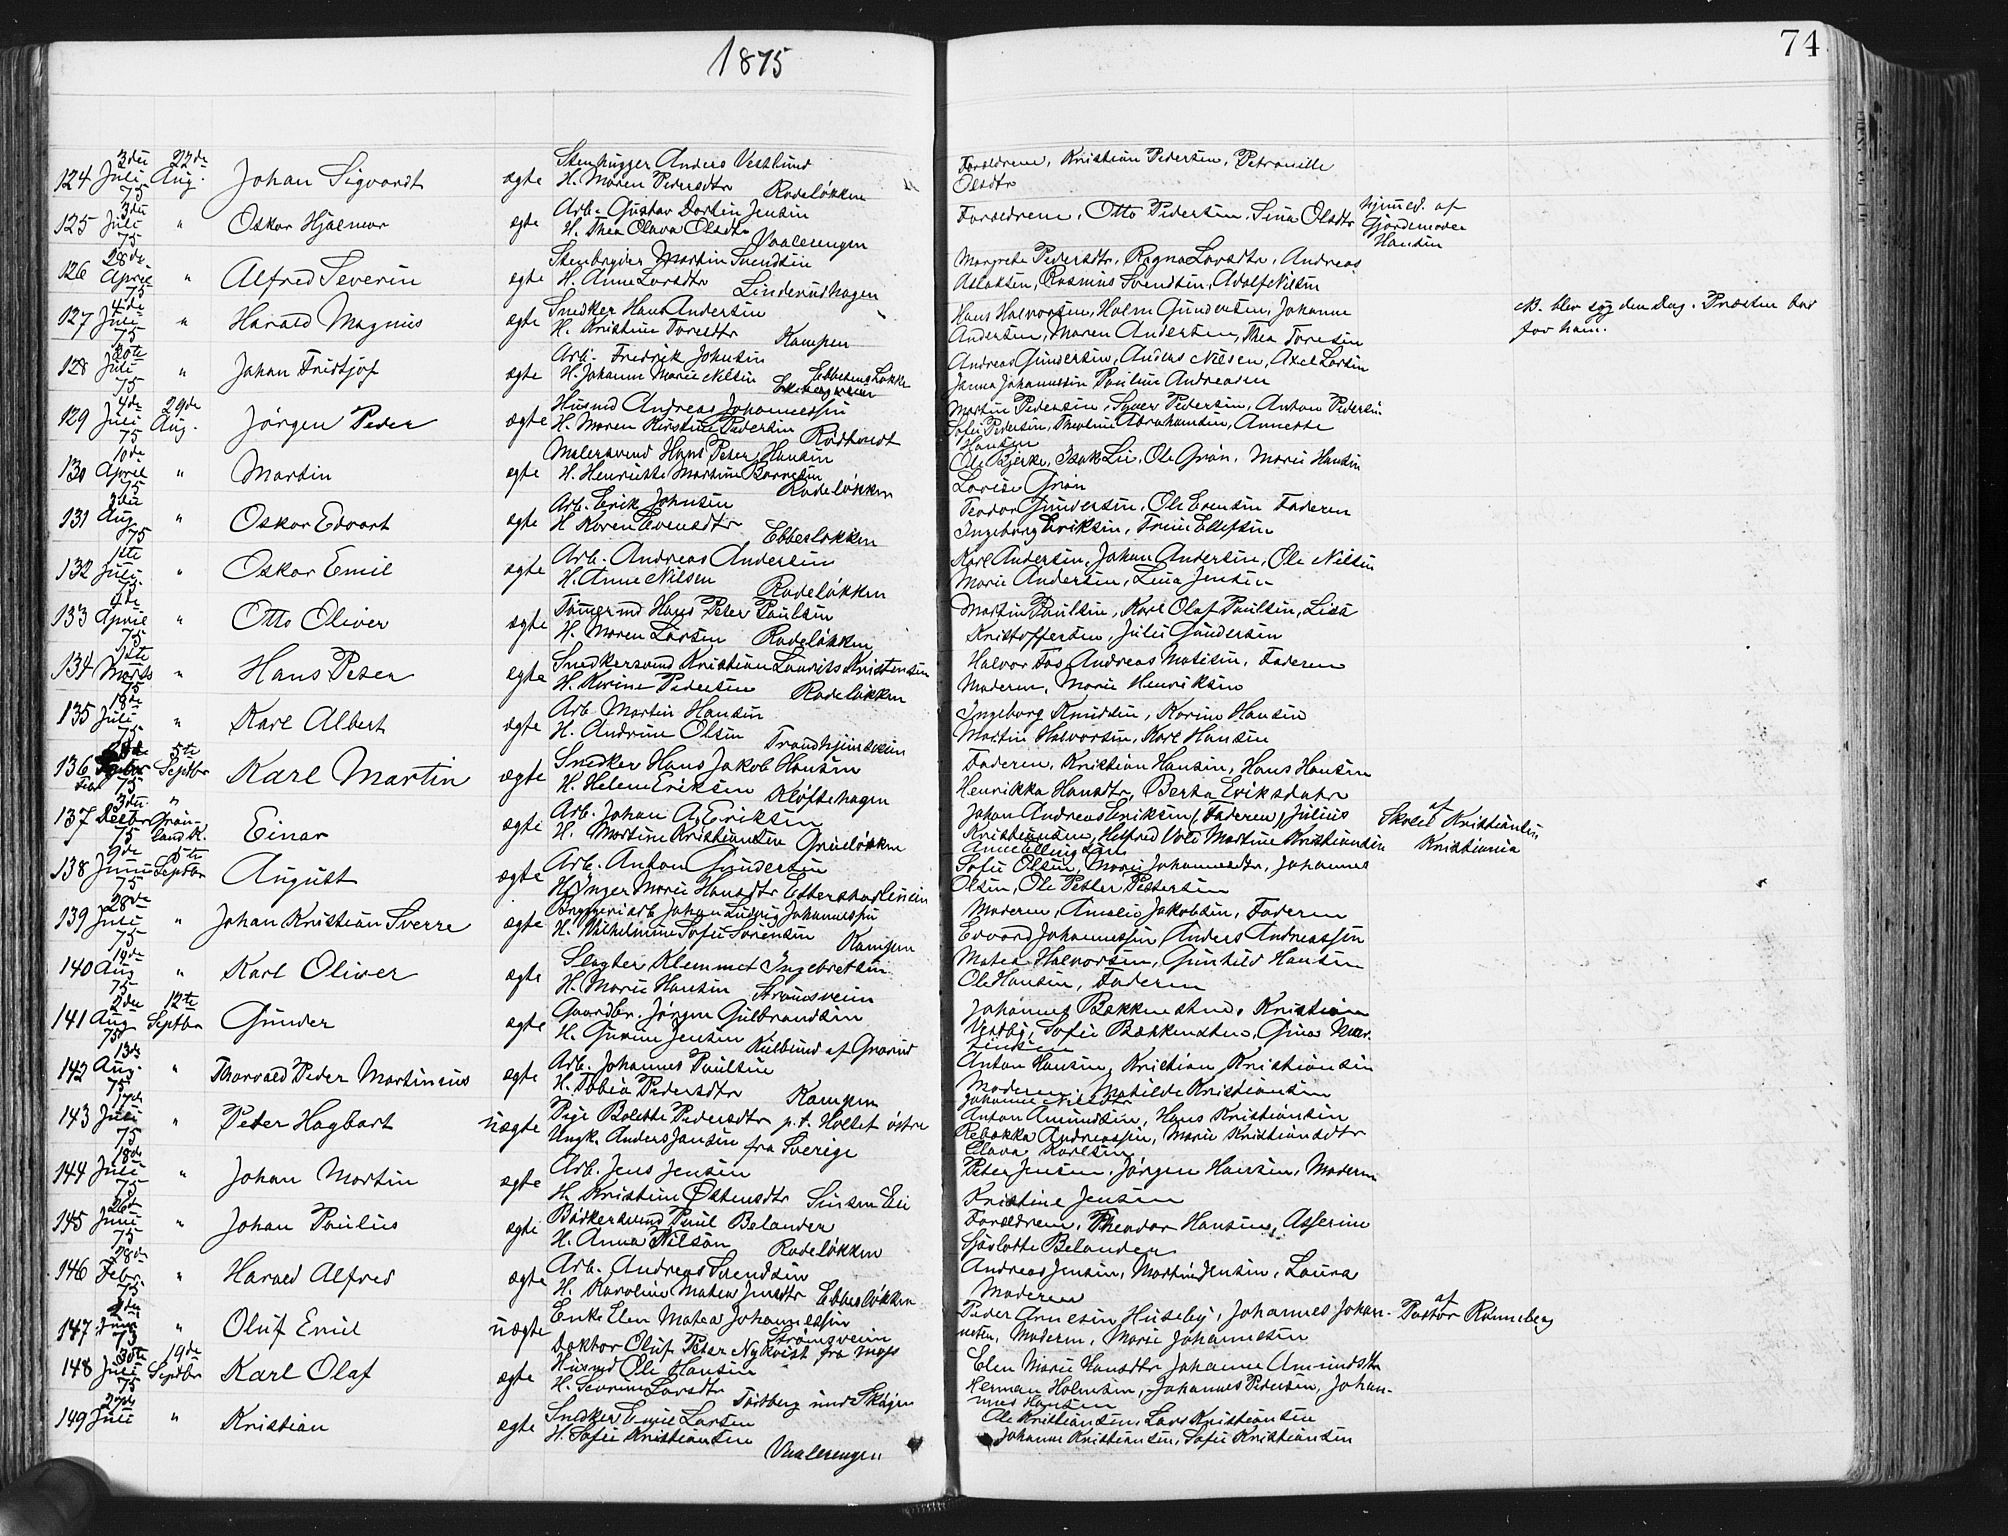 1875
74
124 3die Juli 75 22de Aug. Johan Sigvardt ægte Stenhugger Anders Vestlund
H. Maren Pedersdtr Rodeløkken
Forældrene, Kristian Pedersen, Petronille
Olsdtr
125 3die Juli 75 " Oskar Hjalmar ægte Arb. Gustav Jensen
H. Thea Olava Olsdtr Vaalerengen
Forældrene, Otto Pedersen, Lina Olsdtr
hjemmed. af
Gjordemoder
Hansen
126 28de April 75 " Alfred Severin ægte Stenbryder Martin Svendsen
H. Anne Larsdtr Linderudhagen
Margrete Pedersdtr, Ragna Larsdtr, Andreas
Aslaksen, Rasmus Svendsen, Adolf Nilsen
127 4de Juli 75 " Harald Magnus ægte Snedker Hans Andersen
H. Kristine Kampen
Hans Halvorsen, Gundersen, Johanne
Andersen, Maren Andersen, Thea
M. blev syg den Dag. Præsten bar
for ham.
128 30te Juli 75 " Johan Fridtjof ægte Arb. Fredrik Johnsen
H. Johanne Marie Nilsen Ebbesens Løkke
Andreas Gundersen, Anders Nilsen, Axel Larsen
Janna Johannessen Pauline Andreasen
129 4de Juli 75 29de Aug. Jørgen Peder ægte Husmd Andreas Johannessen
H. Maren Kirstine Pedersen Rødtvedt
Martin Pedersen, Syver Pedersen, Anton Pedersen
Sofie Pedersen, Theoline Abrahamsen, Annette
Hansen
130 10de April 75 " Martin ægte Malersvend Hans Peter Hansen
H. Henriette Martine Rodeløkken
Ole Bjerke, Isak Lie, Ole Grøn, Marie Hansen
Lovise Grøn
131 3die Aug 75 " Oskar Edvart ægte Arb. Erik Johnsen
H. Karen Evensdtr Ebbesløkken
Teodor Gundersen, Ole Evensen Faderen
Ingeborg Eriksen, Trine Ellefsen
132 1ste Juli 75 " Oskar Emil ægte Arb. Andreas Andersen
H. Anne Nilsen Rodeløkken
Karl Andersen, Johan Andersen, Ole Nilsen
Marie Andersen, Lina Jensen
133 4de April 75 " Otto Oliver ægte Tømermd Hans Peter Paulsen
H. Maren Larsen Rodeløkken
Martin Paulsen, Karl Olaf Paulsen, Lisa
Kristoffersen, Julie Gundersen
134 1ste Marts 75 " Hans Peter ægte Snedkersvend Kristian Laurits Kristensen
H. Karine Pedersen Rodeløkken
Halvor Fos Andreas Matisen, Faderen
Moderen, Marie Henriksen
135 18de Juli 75 " Karl Albert ægte Arb. Martin Hansen
H. Andrine Olsen Trondhjemsveien
Ingeborg Knudsen, Karine Hansen
Martin Halvorsen, Karl Hansen
136 75 5te Septbr Karl Martin ægte Snedker Hans Jakob Hansen
H. Helene Eriksen Kløftehagen
Faderen, Kristian Hansen, Hans Hansen
Henrikka Hansdtr, Berta Eriksdatr
137 3die Decbr 75 " Grønland K. Einar ægte Arb. Johan A. Eriksen
H. Martine Kristiansen Grueløkken
Johan Andreas Eriksen (Faderen) Julius
Kristiansen, Helfred Vold Martine Kristiansen
Anne Ellingsen
af
Kristiansen
Kristiania
138 9de Juni 75 5te Septbr August ægte Arb. Anton Gundersen
H. Inger Marie Hansdtr Etterstadlinien
Sofie Olsen, Marie Johannesdtr, Johannes
Olsen, Ole Petter Pettersen
139 28de Juli 75 " Johan Kristian Sverre ægte Bryggeriarb. Johan Ludvig Johannessen
H. Vilhelmine Sofie Sørensen Kampen
Moderen, Amalie Jakobsen, Faderen
Edvard Johannessen Anders Andreassen
140 19de Aug 75 " Karl Oliver ægte Slagter Klemmet Ingebretsen
H. Marie Hansen Strømsveien
Matea Halvorsen, Gunhild Hansen
Ole Hansen, Faderen
141 2den Aug 75 12te Septbr Gunder ægte Gaardbr. Jørgen Gulbrandsen
H. Gurine Jensen Kulbund af Grorud
Johannes Bækkensten, Kristian
Vestby, Sofie Bækkensten, Gina
142 13de Aug. 75 " Thorvald Peder Martinius ægte Arb. Johannes Paulsen
H. Tobia Pedersdtr Kampen
Anton Hansen, Kristian Kristiansen
Moderen, Matilde Kristiansen
143 17de Juli 75 " Peter Hagbart uægte Pige Bolette Pedersdtr p.t. Holtet østre
Ungk. Anders Jansen fra Sverige
Anton Amundsen, Hans Kristiansen
Rebekka Andreassen, Marie Kristiansdtr
Olava Karlsen
144 18de Juli 75 " Johan Martin ægte Arb. Jens Jensen
H. Kristine Østensdtr Sinsen Eie
Peter Jensen, Jørgen Hansen, Moderen
Kristine Jensen
145 26de Juni 75 " Johan Paulus ægte Bødkersvend Paul Belander
H. Anna Nilson Rodeløkken
Forældrene, Theodor Hansen, Asserine
Sjarlotte Belander
146 28de Febr. 75 " Harald Alfred ægte Arb. Andreas Svendsen
H. Karoline Matea Jensdtr Ebbesløkken
Andreas Jensen, Martin Jensen, Laura
Moderen
147 2den Juni 75 " Oluf Emil uægte Enke Elen Matea Johannessen
Strømsveien
Doktor Oluf Peter Nykvist fra Moss
Peder Arnesen Huseby, Johannes Johan-
nesen, Moderen, Marie Johannesen
af
Pastor Rønneberg
148 30te Juli 75 19de Septbr Karl Olaf ægte Husmd Ole Hansen
H. Severine Larsdtr
Elen Marie Hansdtr Johanne Amundsdtr
Herman Holmsen, Johannes Pedersen, Johan-
nes Hansen
149 27de Juli " Kristian ægte Snedker Emil Larsen
H. Sofie Kristiansen Vaalerengen
Ole Kristiansen, Lars Kristiansen
Johanne Kristiansen, Sofie Kristiansen